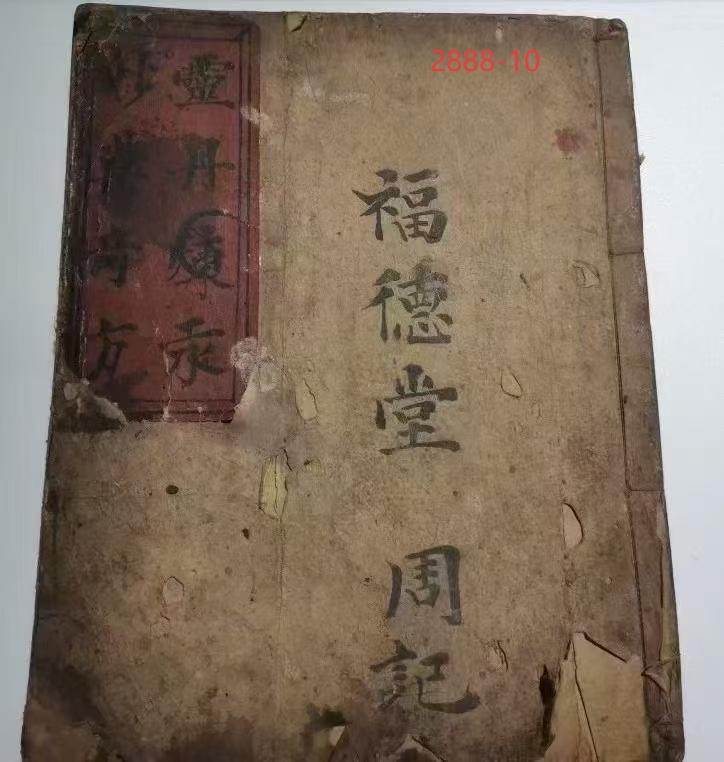 2888-10
福德堂 周記
靈丹汞
妙奇方